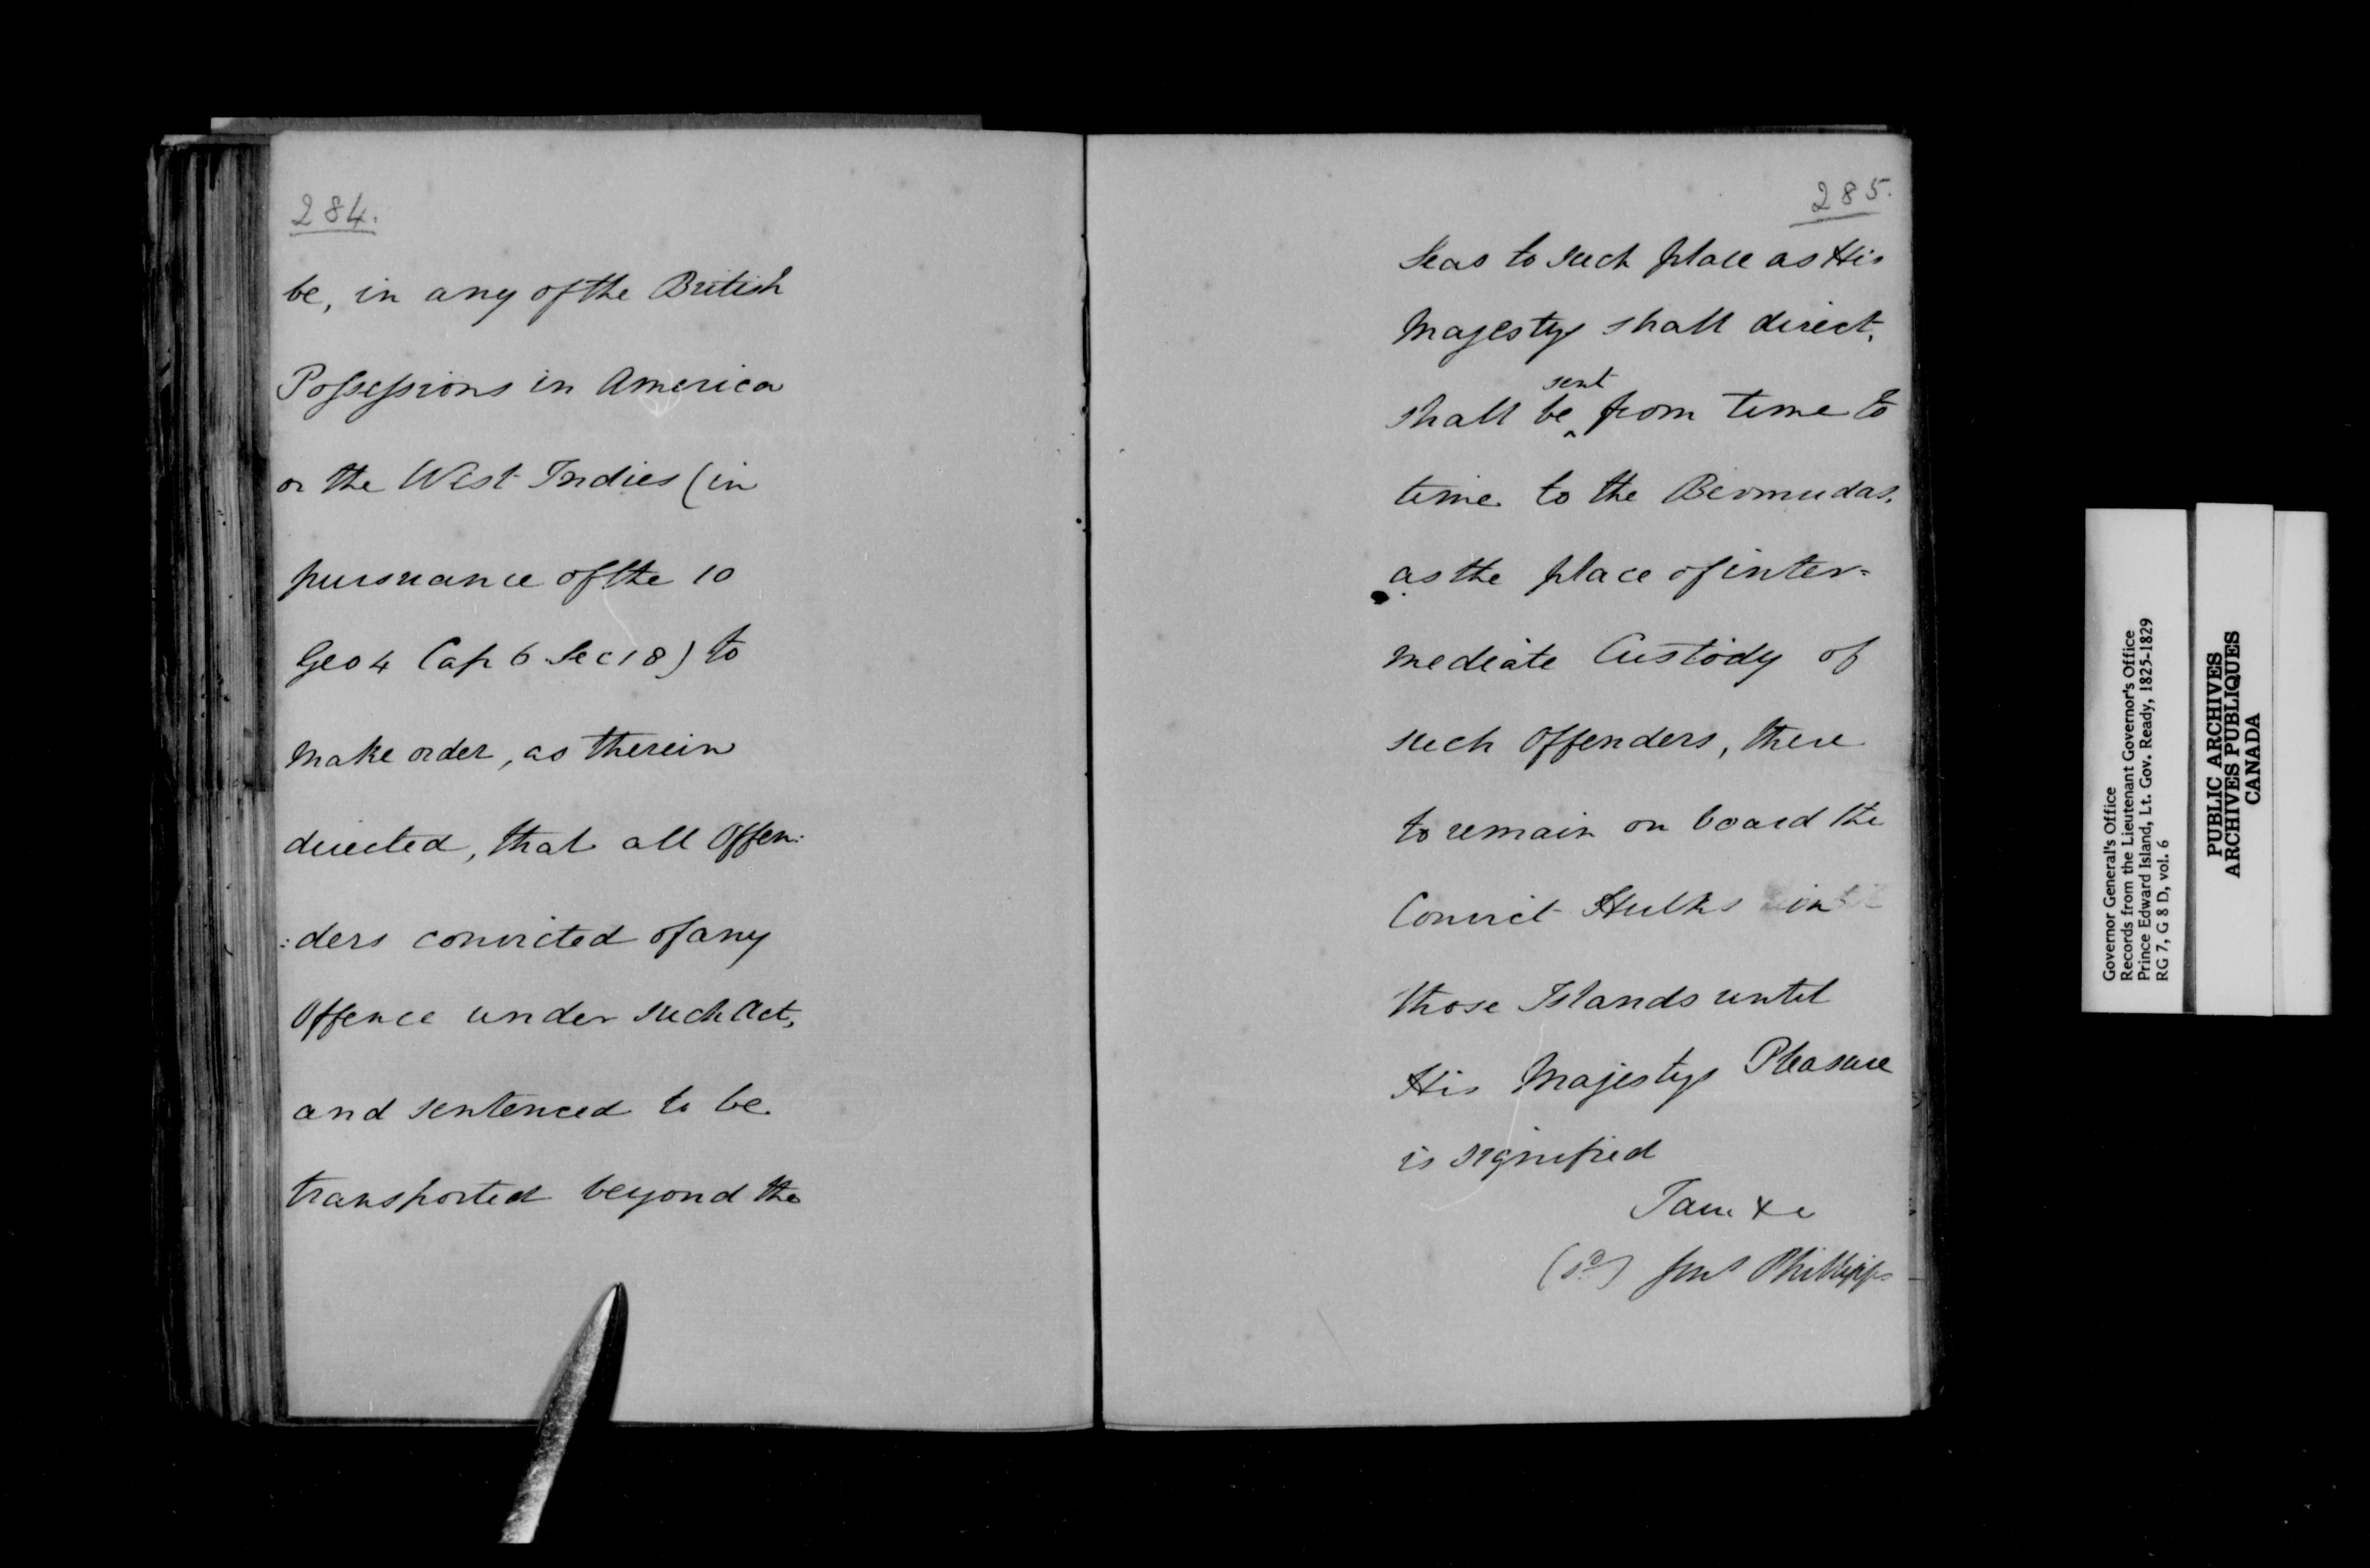 284.
be, in any of the British
Possessions in America
or the West Indies (in
pursuance of the 10
Geo 4 Cap 6 Sec 18) to
make order, as therein
directed, that all Offen:
:ders convicted of any
Offence under such Act,
and sentenced to be
transported beyond the
285.
Seas to such place as His
Majesty shall direct,
sent
shall be ^ from time to
time to the Bermudas,
as the place of inter-
mediate Custody of
such Offenders, there
to remain on board the
Convict Hulks in
those Islands until
His Majestys Pleasure
is signified
I am &c
(sd) Phillipps
Governor General's Office
Records from the Lieutenant Governor's Office
Prince Edward Island, Lt. Gov. Ready, 1825-1829
RG 7, G 8 D, vol. 6
PUBLIC ARCHIVES
ARCHIVES PUBLIQUES
CANADA